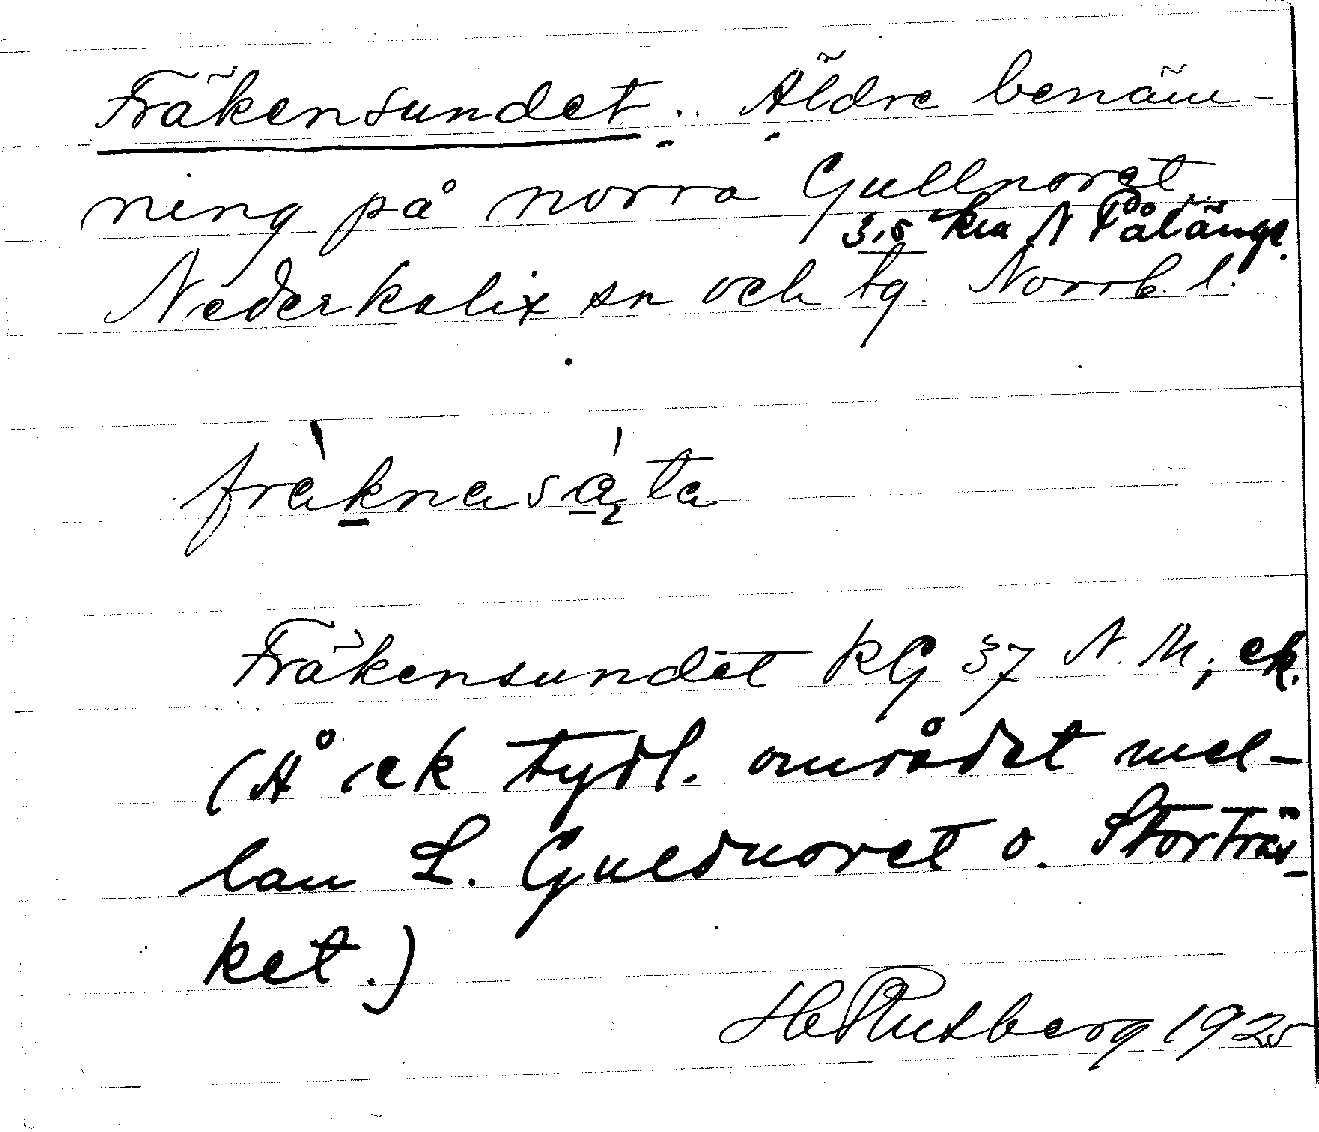 Fräkensundet. Äldre benäm-
ning på norra Gullnoret
3,5 km N Pålänge.
Nederkalix sn och tg Norrb. l.
fräknasąta
Fräkensundet KG 37 N.M; ek.
(Å ek tydl. området mel-
lan L. Guldnoret o. Storträs-
ket.)
H Rutberg 1925